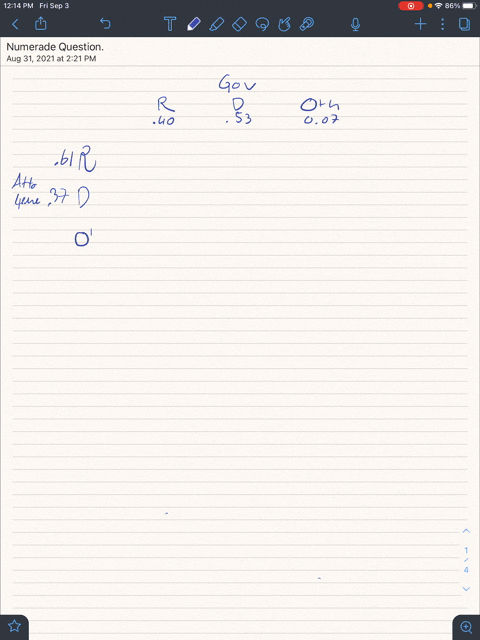 12:14 PM Fri Sep 3
86%
Numerade Question.
Aug 31, 2021 at 2:21 PM
Gov
R D Oth
.40 .53 0.07
.61 R
Atto
Gene .37 D
O'
1
/
4